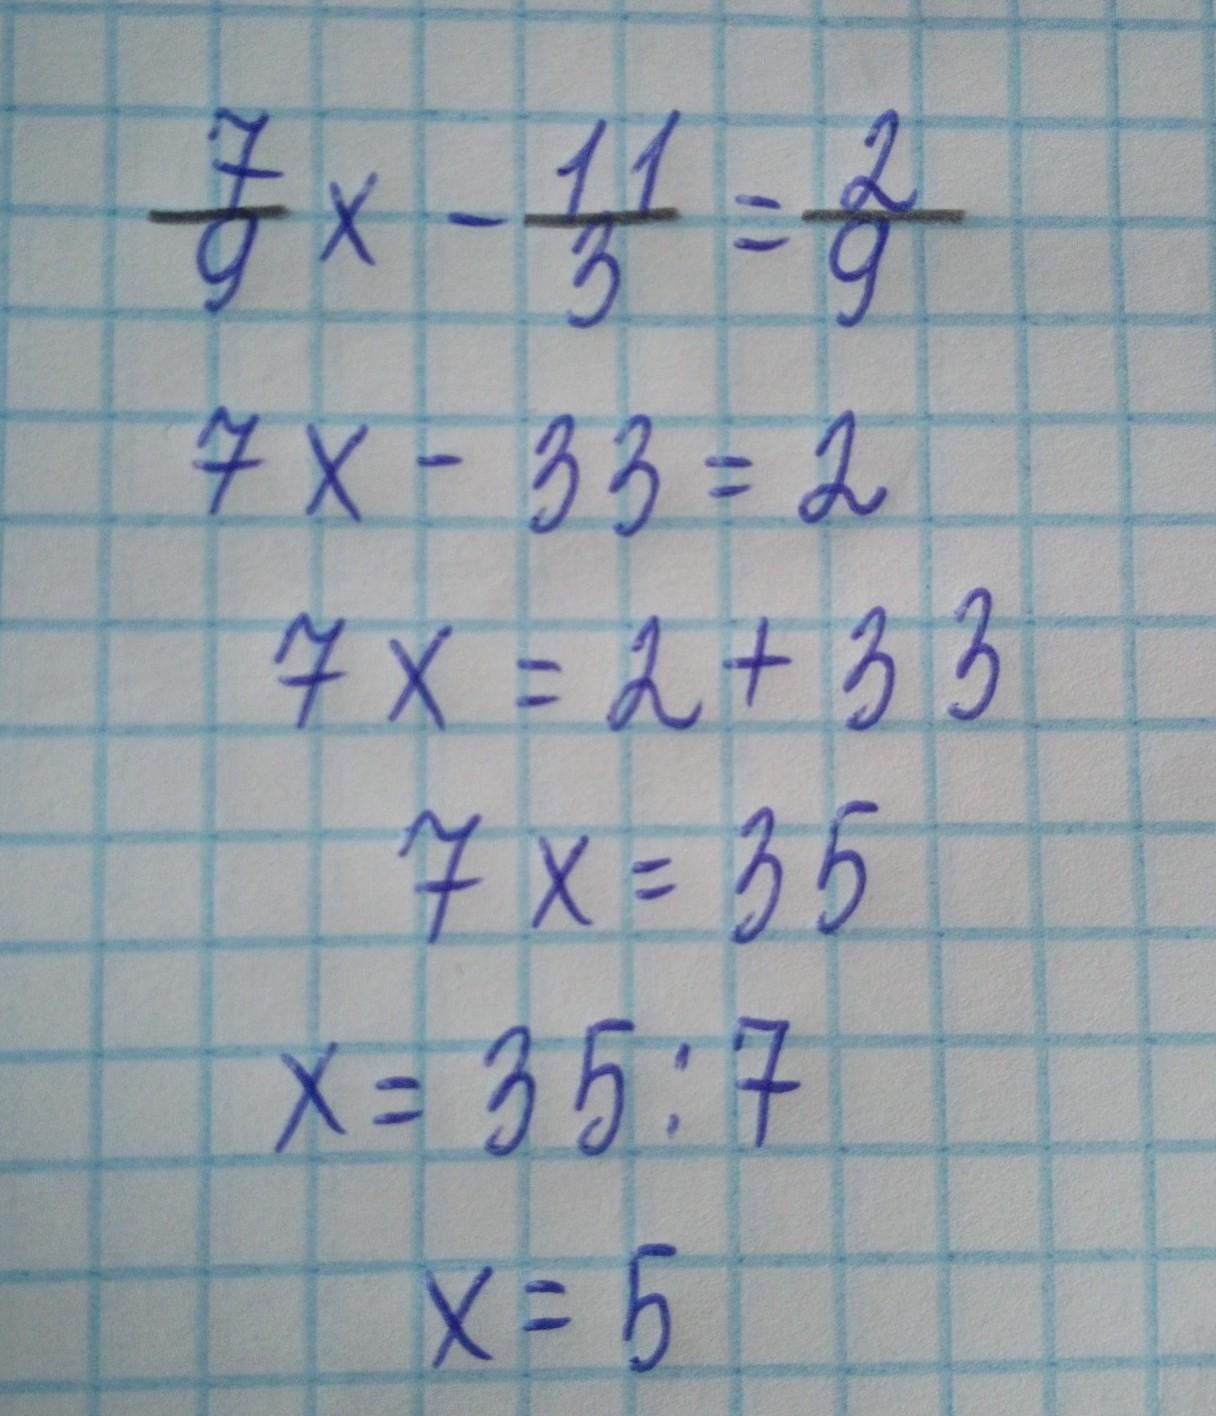 7/9 x - 11/3 = 2/9
7x - 33 = 2
7x = 2 + 33
7x = 35
x = 35 : 7
x = 5